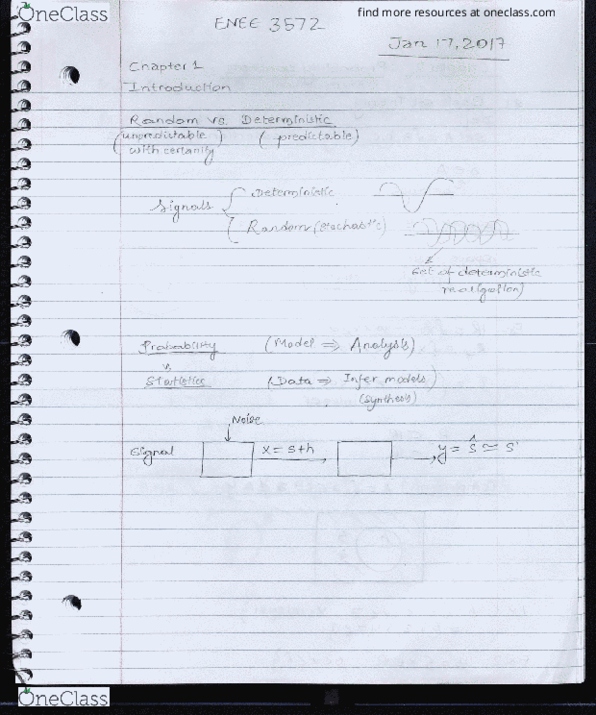 OneClass
find more resources at oneclass.com
ENEE 3572
Jan 17, 2017
Chapter 1
Introduction
Random vs. Deterministic
(unpredictable) (predictable)
with certanity
Signals { Deterministic
Random (stochastic)
Set of deterministic
Probability (Model ⇒ Analysis)
vs
Statistics (Data ⇒ Infer models)
(synthesis)
Noise
Signal x = s+h y = ŝ ≃ s
OneClass